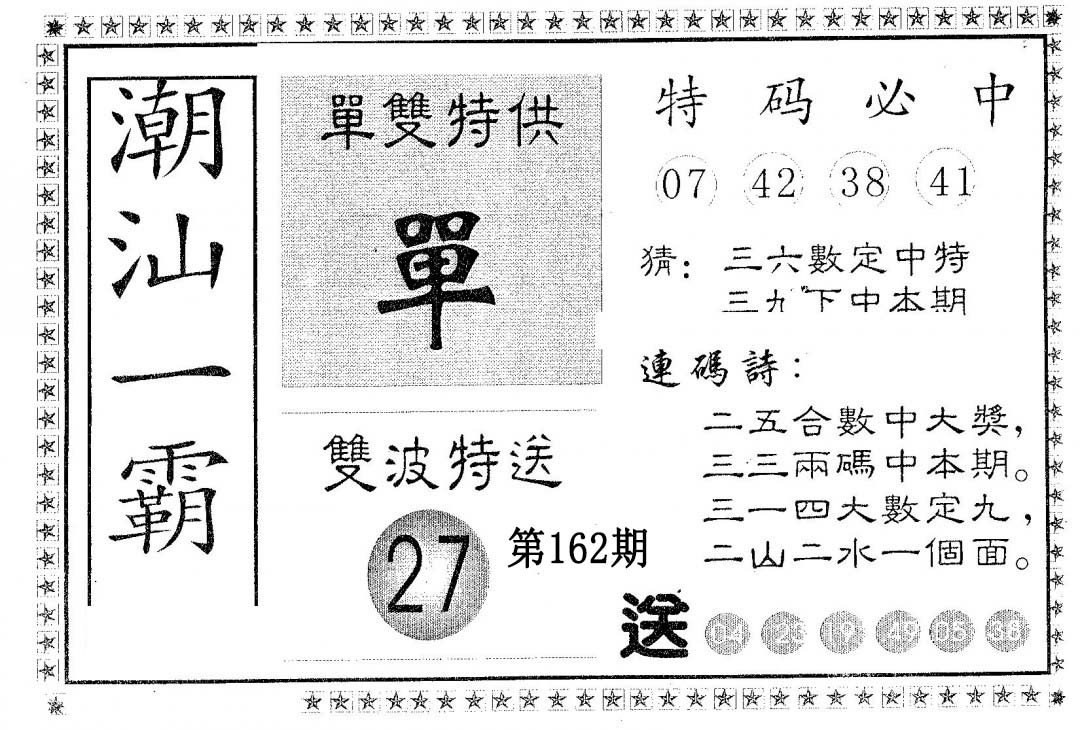 潮汕一霸
單雙特供
單
雙波特送
27
第162期
特码必中
07 42 38 41
猜：三六數定中特
三九下中本期
連碼詩：
二五合數中大獎，
三三兩碼中本期。
三一四大數定九，
二山二水一個面。
送 04 23 19 49 05 38